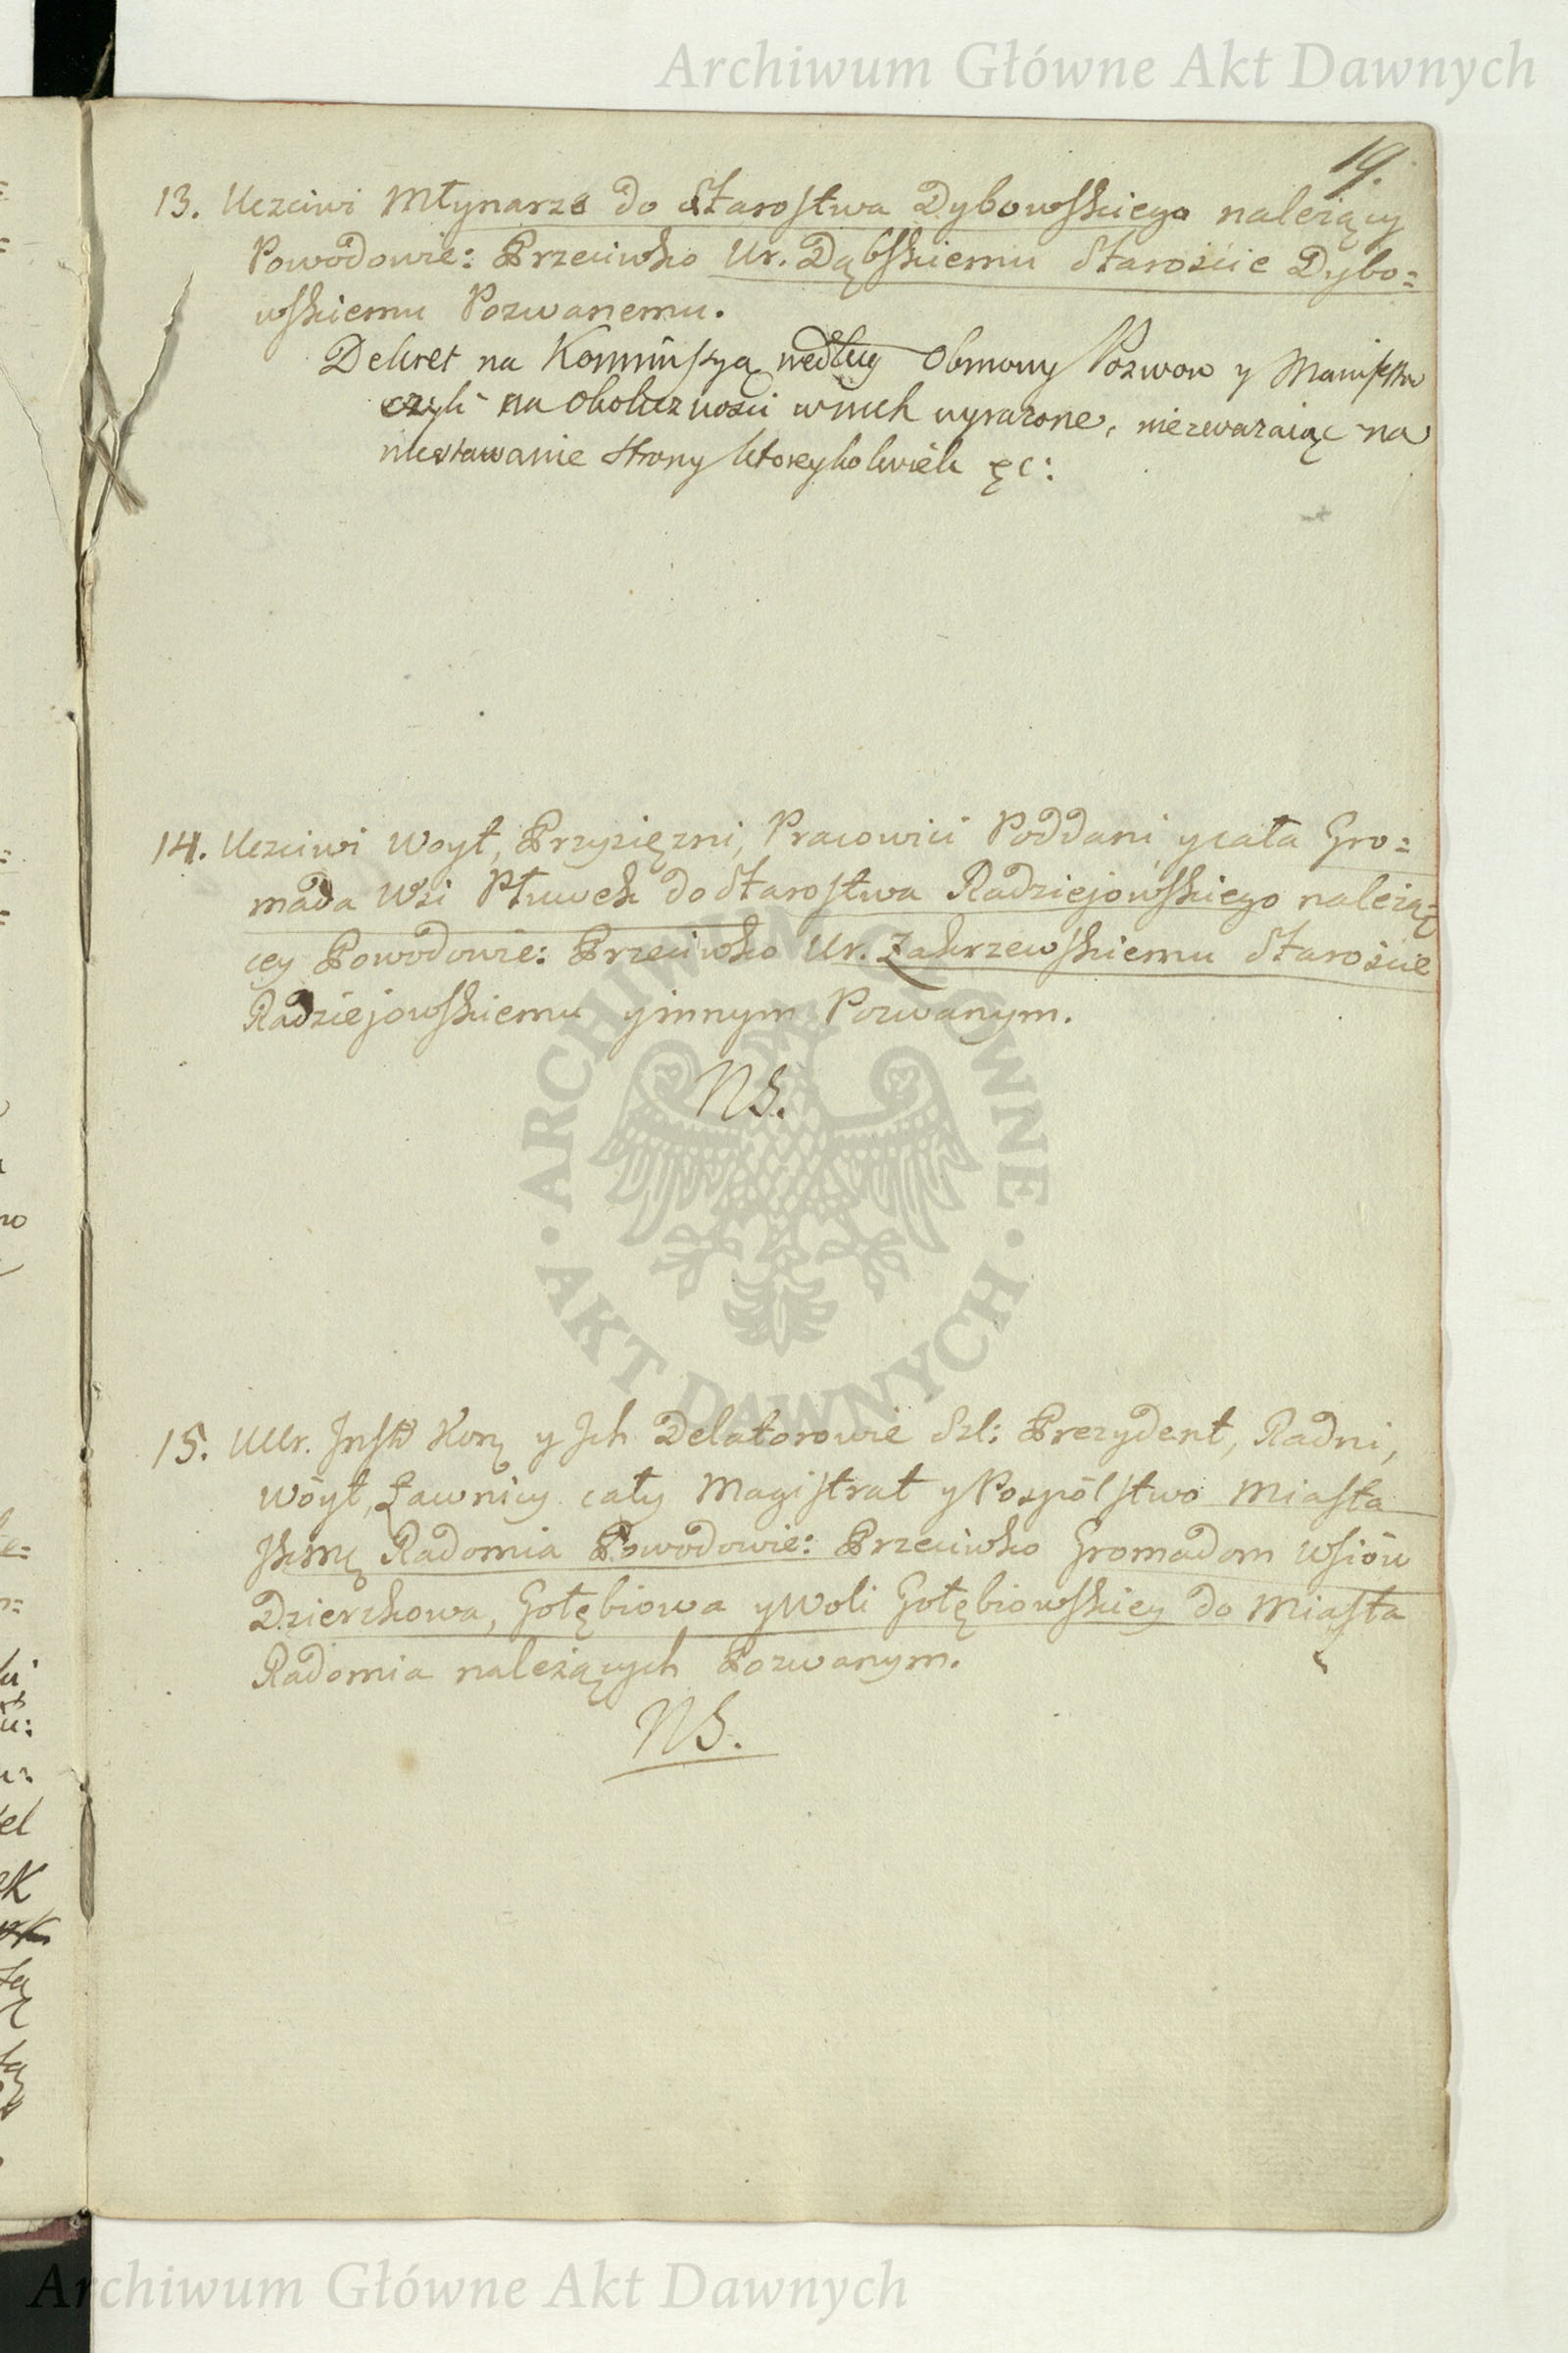 Archiwum Główne Akt Dawnych
19.
13. Uczciwi Młynarze do Starostwa Dybowskiego należący
Powodowie: Przeciwko Ur. Dąbskiemu Staroścíe Dybo=
wskiemu Pozwanemu.
Dekret na Kommissyą według Obmowy Pozwow y Manifestu
czyli na okoliczności w nich wyrażone, niezważaiąc na
niestawanie Strony ktoreykolwiek ęc:
14. Uczciwi Woyt, Przysięzni, Pracowici Poddani y cała Gro=
mada Wsi Płuwek do Starostwa Radziejowskiego należą=
cey Powodowie: Przeciwko Ur. Zakrzewskiemu Staroścíe
Radziejowskiemu y innym Pozwanym.
NS.
15. UUr. Inst Kor̨ y Ich Delatorowie Szl: Prezydent, Radni,
Wóyt, Ławnicy cały Magistrat y Pospólstwo Miasta
JKmę Radomia Powodowie: Przeciwko Gromadom Wsiów
Dzierzkowa, Gołębiowa y Woli Gołębiowskiey do Miasta
Radomia należących Pozwanym.
NS.
ARCHIWUM GŁÓWNE · AKT DAWNYCH ·
Archiwum Główne Akt Dawnych